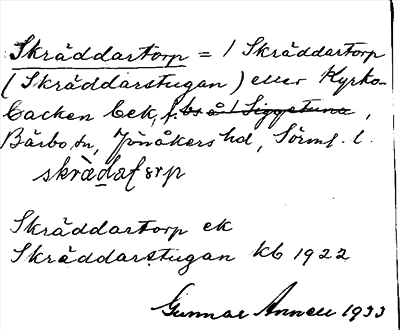 Skräddartorp = / Skräddartorp
(Skräddarstugan) eller Kyrko-
backen bek, f. bs å / Siggetuna,
Bärbo sn, Jönåkers hd, Sörml. l.
Skräddartorp ek
Skräddarstugan kb 1922
Gunnar Annell 1933